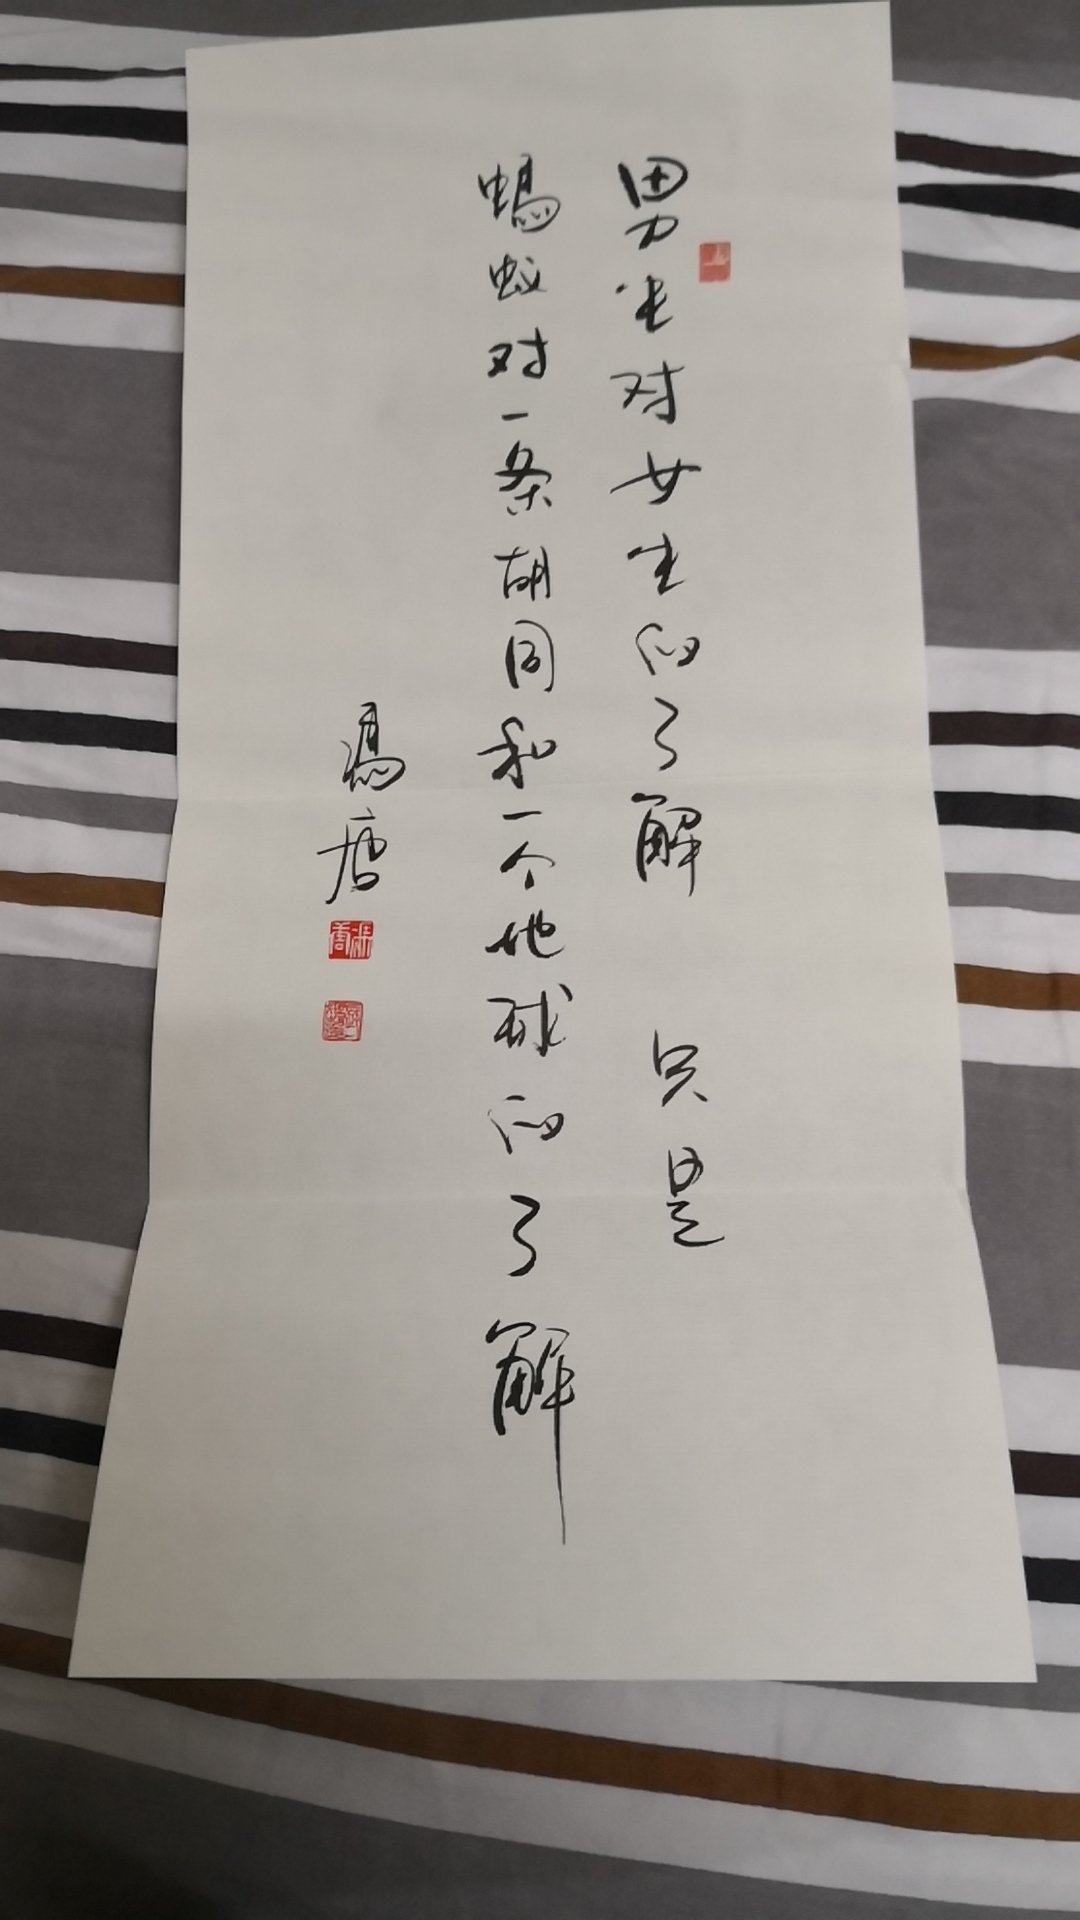 男生对女生的了解 只是
螞蚁对一条胡同和一个地球的了解
馮唐
馮唐